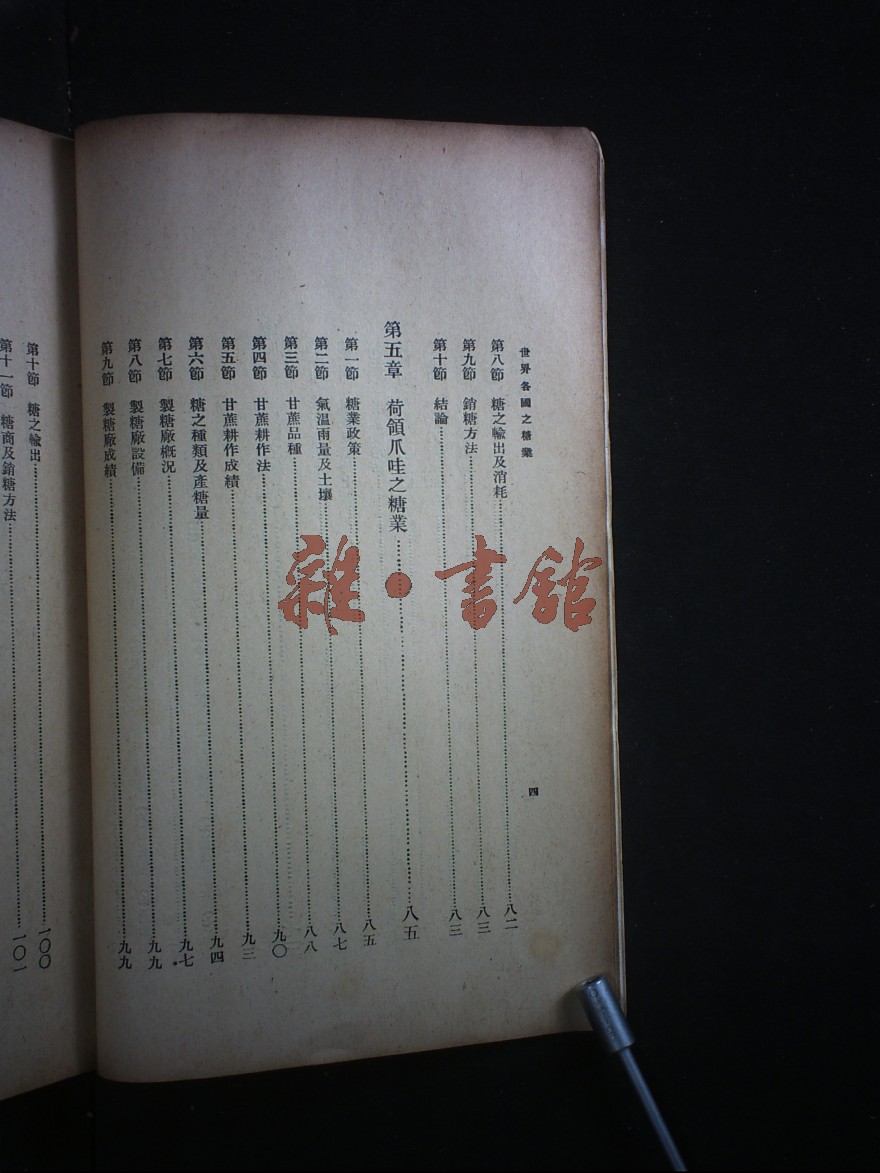 世界各國之糖業
四
第八節 糖之輸出及消耗 八二
第九節 銷糖方法 八三
第十節 結論 八三
第五章 荷領爪哇之糖業 八五
第一節 糖業政策 八五
第二節 氣溫雨量及土壤 八七
第三節 甘蔗品種 八八
第四節 甘蔗耕作法 九〇
第五節 甘蔗耕作成績 九三
第六節 糖之種類及產糖量 九四
第七節 製糖廠概況 九七
第八節 製糖廠設備 九九
第九節 製糖廠成績 九九
第十節 糖之輸出 一〇〇
第十一節 糖商及銷糖方法 一〇一
雜·書館